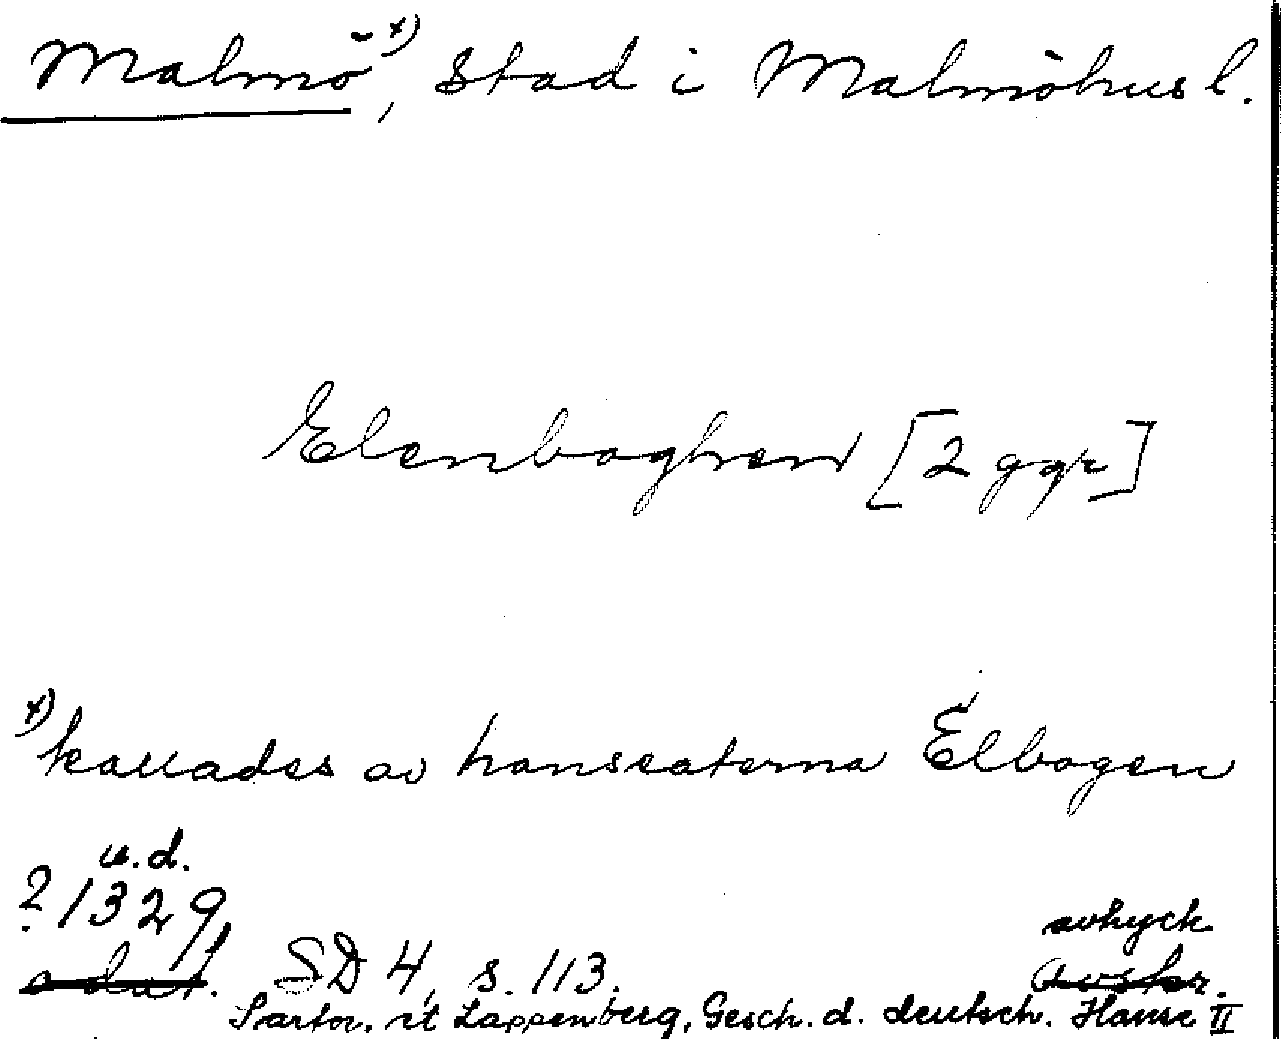 Malmö x), stad i Malmöhus l.
Elenboghen [2 ggr]
x) kallades av hanseaterna Elbogen
u.d.
? 1329
odat. SD 4, s. 113. avtryck
Avskr.
Sartor. ut Lappenberg, Gesch. d. deutsch. Hanse II